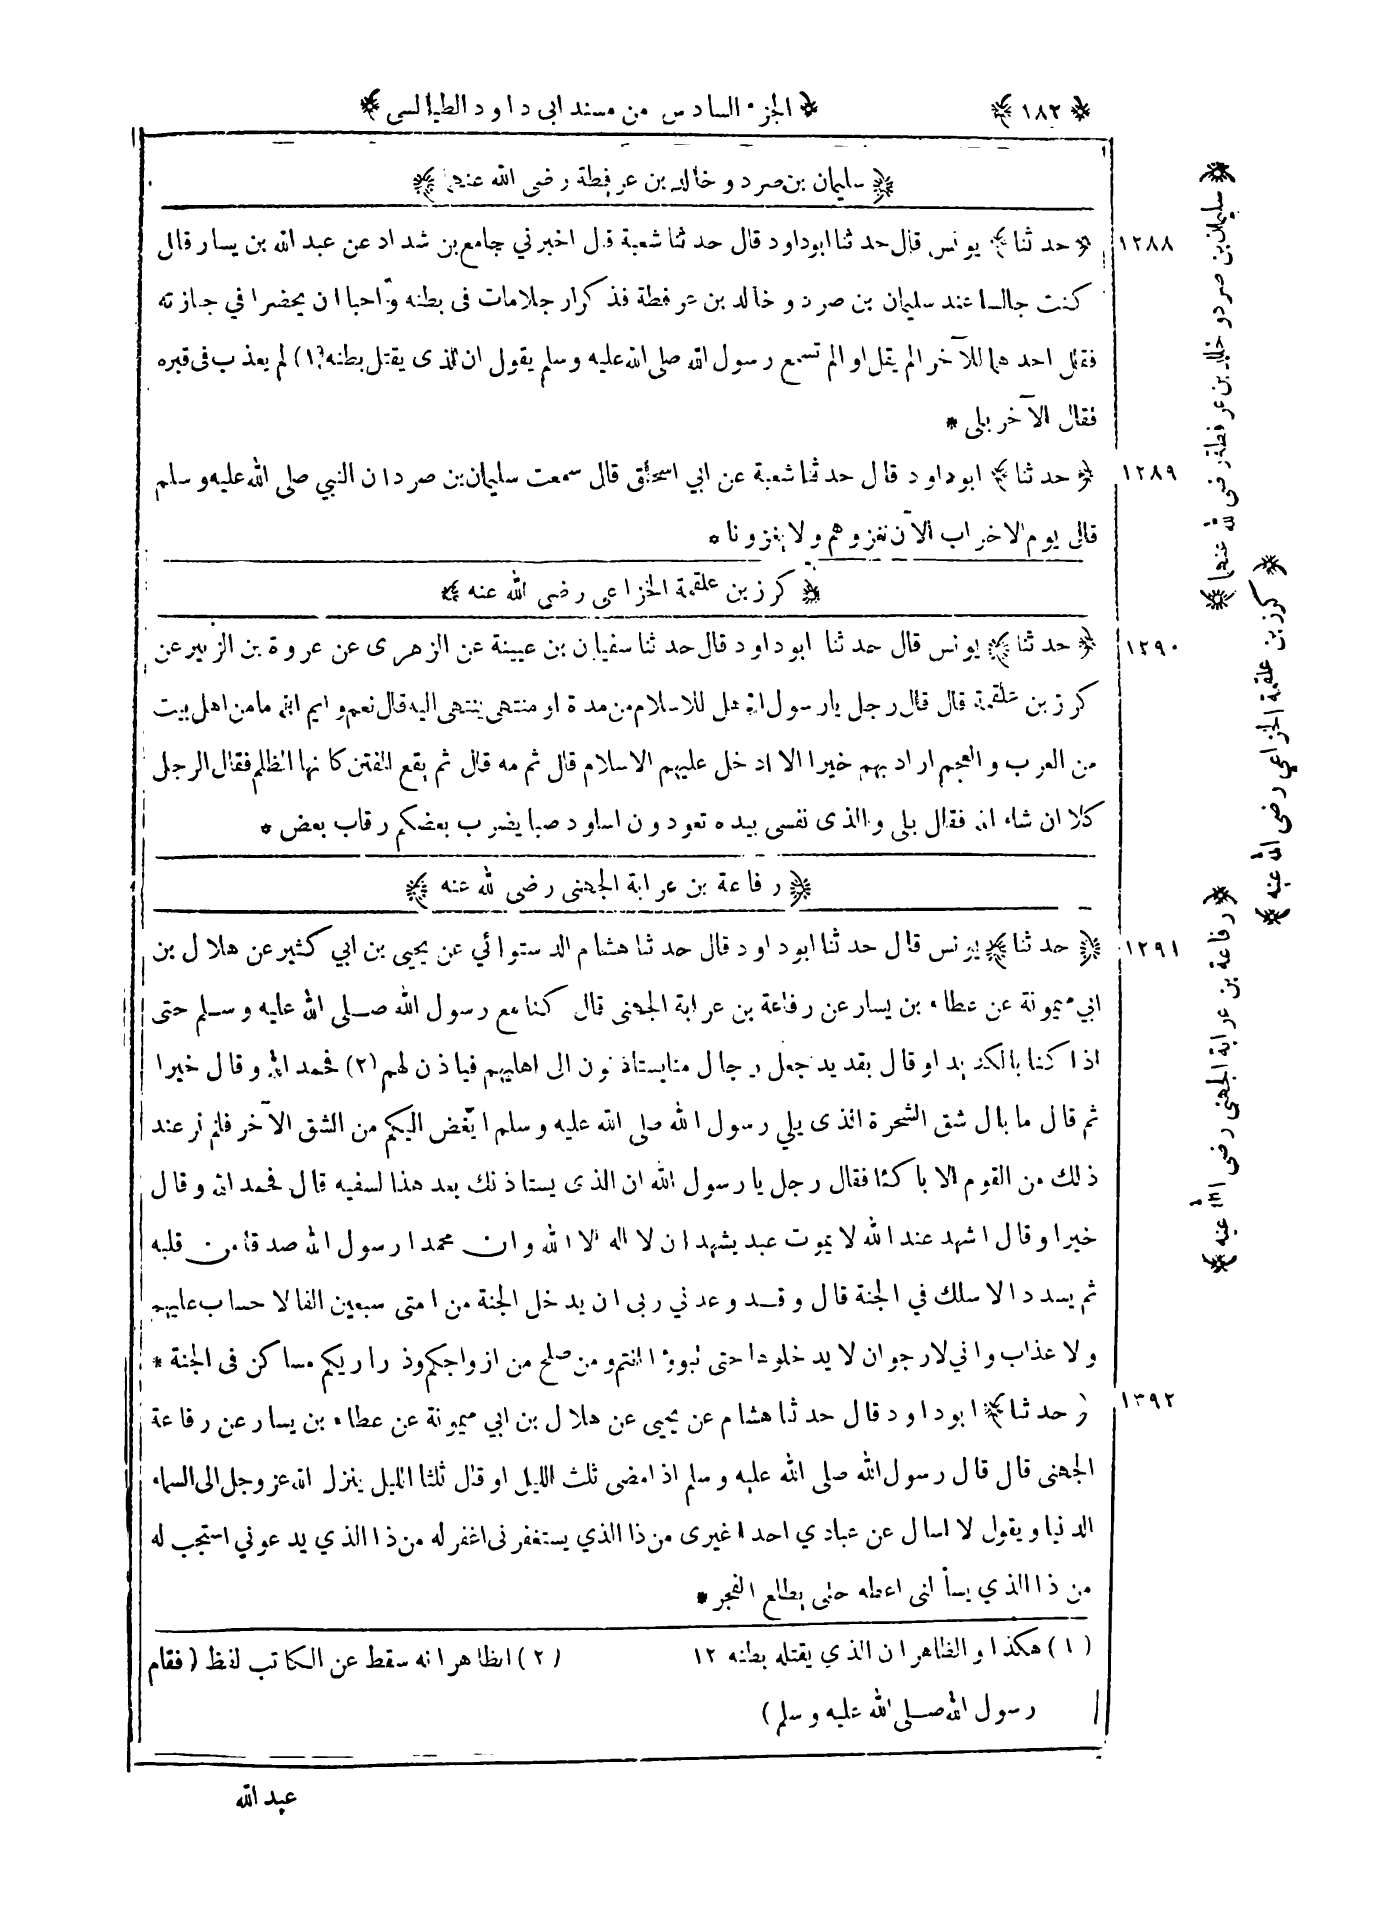 ﴿ ١٨٢ ﴾ ﴿ الجزء السادس من مسند ابى داود الطيالسى ﴾
﴿ سليمان بن صرد و خالد بن عرفطة رضى الله عنهما ﴾
١٢٨٨ ﴿ حدثنا ﴾ يونس قال حدثنا ابوداود قال حدثنا شعبة قال اخبرني جامع بن شداد عن عبد الله بن يسار قال
كنت جالسا عند سليمان بن صرد و خالد بن عرفطة فذكرا رجلا مات فى بطنه و احبا ان يحضرا في جنازته
فقال احدهما للآخر الم يقل او الم تسمع رسول الله صلى الله عليه وسلم يقول ان الذى يقتل بطنه (١) لم يعذب فى قبره
فقال الآخر بلى *
١٢٨٩ ﴿ حدثنا ﴾ ابو داود قال حدثنا شعبة عن ابي اسحاق قال سمعت سليمان بن صرد ان النبي صلى الله عليه وسلم
قال يوم الاحزاب الآن نغزوهم ولا يغزونا *
﴿ كرز بن علقمة الخزاعى رضى الله عنه ﴾
١٢٩٠ ﴿ حدثنا ﴾ يونس قال حدثنا ابوداود قال حدثنا سفيان بن عيينة عن الزهرى عن عروة بن الزبير عن
كرز بن علقمة قال قال رجل يا رسول الله هل للاسلام من مدة او منتهى ينتهى اليه قال نعم و ايم الله ما من اهل بيت
من العرب والعجم اراد بهم خيرا الا ادخل عليهم الاسلام قال ثم مه قال ثم يقع الفتن كانها الظلم فقال الرجل
كلا ان شاء الله فقال بلى والذى نفسى بيده تعودون اساود صبا يضرب بعضكم رقاب بعض *
﴿ رفاعة بن عرابة الجهنى رضى الله عنه ﴾
١٢٩١ ﴿ حدثنا ﴾ يونس قال حدثنا ابوداود قال حدثنا هشام الدستوائي عن يحيى بن ابي كثير عن هلال بن
ابي ميمونة عن عطاء بن يسار عن رفاعة بن عرابة الجهنى قال كنا مع رسول الله صلى الله عليه وسلم حتى
اذا كنا بالكديد او قال بقديد جعل رجال منا يستاذنون الى اهليهم فياذن لهم (٢) فحمد الله وقال خيرا
ثم قال ما بال شق الشجرة الذى يلي رسول الله صلى الله عليه وسلم ابغض اليكم من الشق الآخر فلم نر عند
ذلك من القوم الا باكئا فقال رجل يا رسول الله ان الذى يستاذنك بعد هذا لسفيه قال فحمد الله وقال
خيرا وقال اشهد عند الله لا يموت عبد يشهد ان لا اله الا الله وان محمدا رسول الله صدقا من قلبه
ثم يسدد الا سلك في الجنة قال وقد وعدني ربى ان يدخل الجنة من امتى سبعين الفا لا حساب عليهم
ولا عذاب واني لارجو ان لا يدخلوها حتى تبوؤا انتم ومن صلح من ازواجكم وذراريكم مساكن فى الجنة *
١٢٩٢ ﴿ حدثنا ﴾ ابو داود قال حدثنا هشام عن يحيى عن هلال بن ابي ميمونة عن عطاء بن يسار عن رفاعة
الجهنى قال قال رسول الله صلى الله عليه وسلم اذا مضى ثلث الليل او قال ثلثا الليل ينزل الله عز وجل الى السماء
الدنيا ويقول لا اسال عن عبادي احدا غيرى من ذا الذي يستغفرنى اغفر له من ذا الذي يدعوني استجب له
من ذا الذي يسألنى اعطه حتى يطلع الفجر *
(١) هكذا والظاهر ان الذي يقتله بطنه ١٢ (٢) الظاهر انه سقط عن الكاتب لفظ (فقام
رسول الله صلى الله عليه وسلم)
عبد الله
﴿ سليمان بن صرد و خالد بن عرفطة رضى الله عنهما ﴾
﴿ كرز بن علقمة الخزاعي رضى الله عنه ﴾
﴿ رفاعة بن عرابة الجهنى رضى الله عنه ﴾